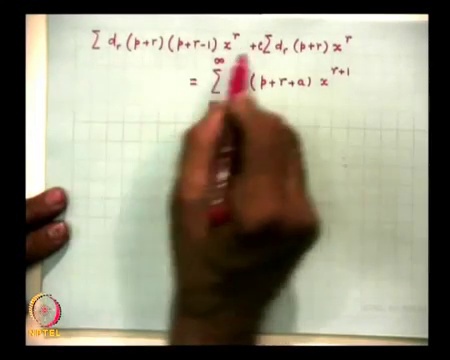 Σ d_r (p+r) (p+r-1) x^r + c Σ d_r (p+r) x^r
∞
= Σ (p+r+a) x^{r+1}
NPTEL